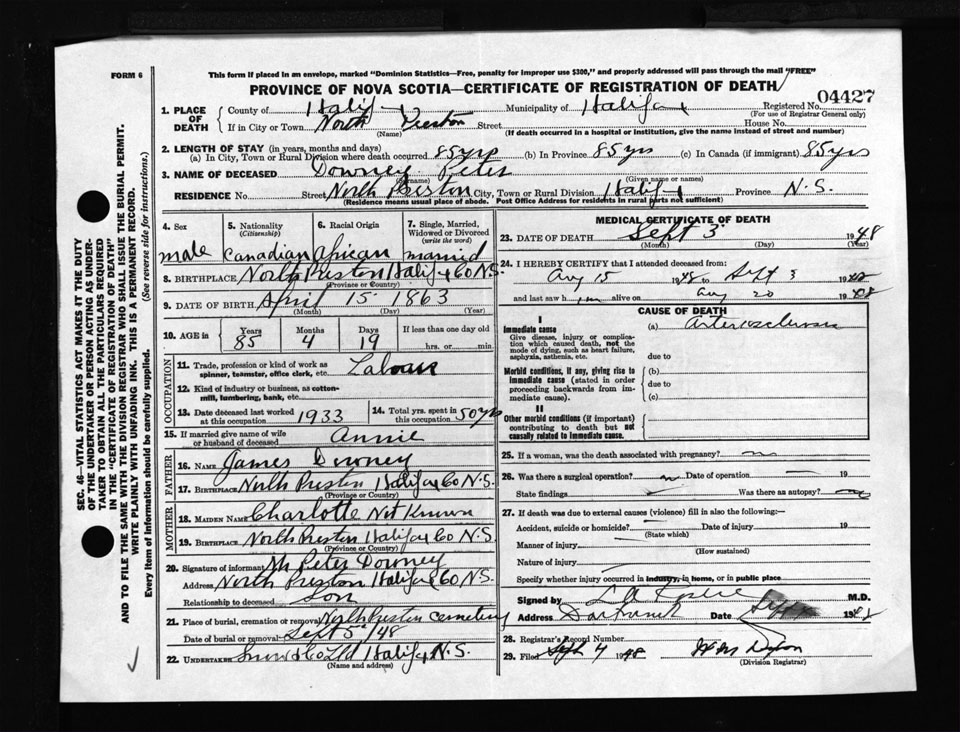 FORM 6
This form if placed in an envelope, marked "Dominion Statistics—Free, penalty for improper use $300," and properly addressed will pass through the mail "FREE"
PROVINCE OF NOVA SCOTIA—CERTIFICATE OF REGISTRATION OF DEATH
1. PLACE OF DEATH County of Halifax Municipality of Halifax Registered No. 04427
(For use of Registrar General only)
If in City or Town North Preston Street House No.
(Name) (If death occurred in a hospital or institution, give the name instead of street and number)
2. LENGTH OF STAY (in years, months and days)
(a) In City, Town or Rural Division where death occurred 85 yrs (b) In Province 85 yrs (c) In Canada (if immigrant) 85 yrs
3. NAME OF DECEASED Downey Peter
(Surname) (Given name or names)
RESIDENCE No. Street North Preston City, Town or Rural Division Halifax Province N.S.
(Residence means usual place of abode. Post Office Address for residents in rural parts not sufficient)
4. Sex 5. Nationality (Citizenship) 6. Racial Origin 7. Single, Married, Widowed or Divorced (write the word)
male Canadian African married
8. BIRTHPLACE North Preston Halifax Co N.S.
(Province or Country)
9. DATE OF BIRTH April 15 1863
(Month) (Day) (Year)
10. AGE in Years Months Days If less than one day old
85 4 19 hrs. or min.
OCCUPATION
11. Trade, profession or kind of work as spinner, teamster, office clerk, etc.
12. Kind of industry or business, as cotton-mill, lumbering, bank, etc.
13. Date deceased last worked at this occupation 1933 14. Total yrs. spent in this occupation 50 yrs
15. If married give name of wife or husband of deceased Annie
FATHER
16. NAME James Downey
17. BIRTHPLACE North Preston Halifax Co N.S.
(Province or Country)
MOTHER
18. MAIDEN NAME Charlotte Not Known
19. BIRTHPLACE North Preston Halifax Co N.S.
(Province or Country)
20. Signature of informant Mr Peter Downey
Address North Preston Halifax Co N.S.
Relationship to deceased Son
21. Place of burial, cremation or removal North Preston cemetery
Date of burial or removal Sept 5/48
22. UNDERTAKER Snow & Co Ltd Halifax N.S.
(Name and address)
MEDICAL CERTIFICATE OF DEATH
23. DATE OF DEATH Sept 3 1948
(Month) (Day) (Year)
24. I HEREBY CERTIFY that I attended deceased from:
Aug 15 1948 to Sept 3 1948
and last saw him alive on Aug 20 1948
CAUSE OF DEATH
I
Immediate cause (a) Arteriosclerosis
Give disease, injury or complication which caused death, not the mode of dying, such as heart failure, asphyxia, asthenia, etc.
due to
Morbid conditions, if any, giving rise to immediate cause (stated in order proceeding backwards from immediate cause).
(b)
due to
(c)
II
Other morbid conditions (if important) contributing to death but not causally related to immediate cause.
25. If a woman, was the death associated with pregnancy?
26. Was there a surgical operation? no Date of operation 19
State findings Was there an autopsy? no
27. If death was due to external causes (violence) fill in also the following:—
Accident, suicide or homicide? Date of injury 19
(State which)
Manner of injury
(How sustained)
Nature of injury
Specify whether injury occurred in industry, in home, or in public place
Signed by M.D.
Address Dartmouth Date Sept 194
28. Registrar's Record Number
29. Filed Sept 4 1948
(Division Registrar)
SEC. 46—VITAL STATISTICS ACT MAKES IT THE DUTY
OF THE UNDERTAKER OR PERSON ACTING AS UNDER-
TAKER TO OBTAIN ALL THE PARTICULARS REQUIRED
IN THE "CERTIFICATE OF REGISTRATION OF DEATH"
AND TO FILE THE SAME WITH THE DIVISION REGISTRAR WHO SHALL ISSUE THE BURIAL PERMIT.
WRITE PLAINLY WITH UNFADING INK. THIS IS A PERMANENT RECORD.
Every item of information should be carefully supplied. (See reverse side for instructions.)